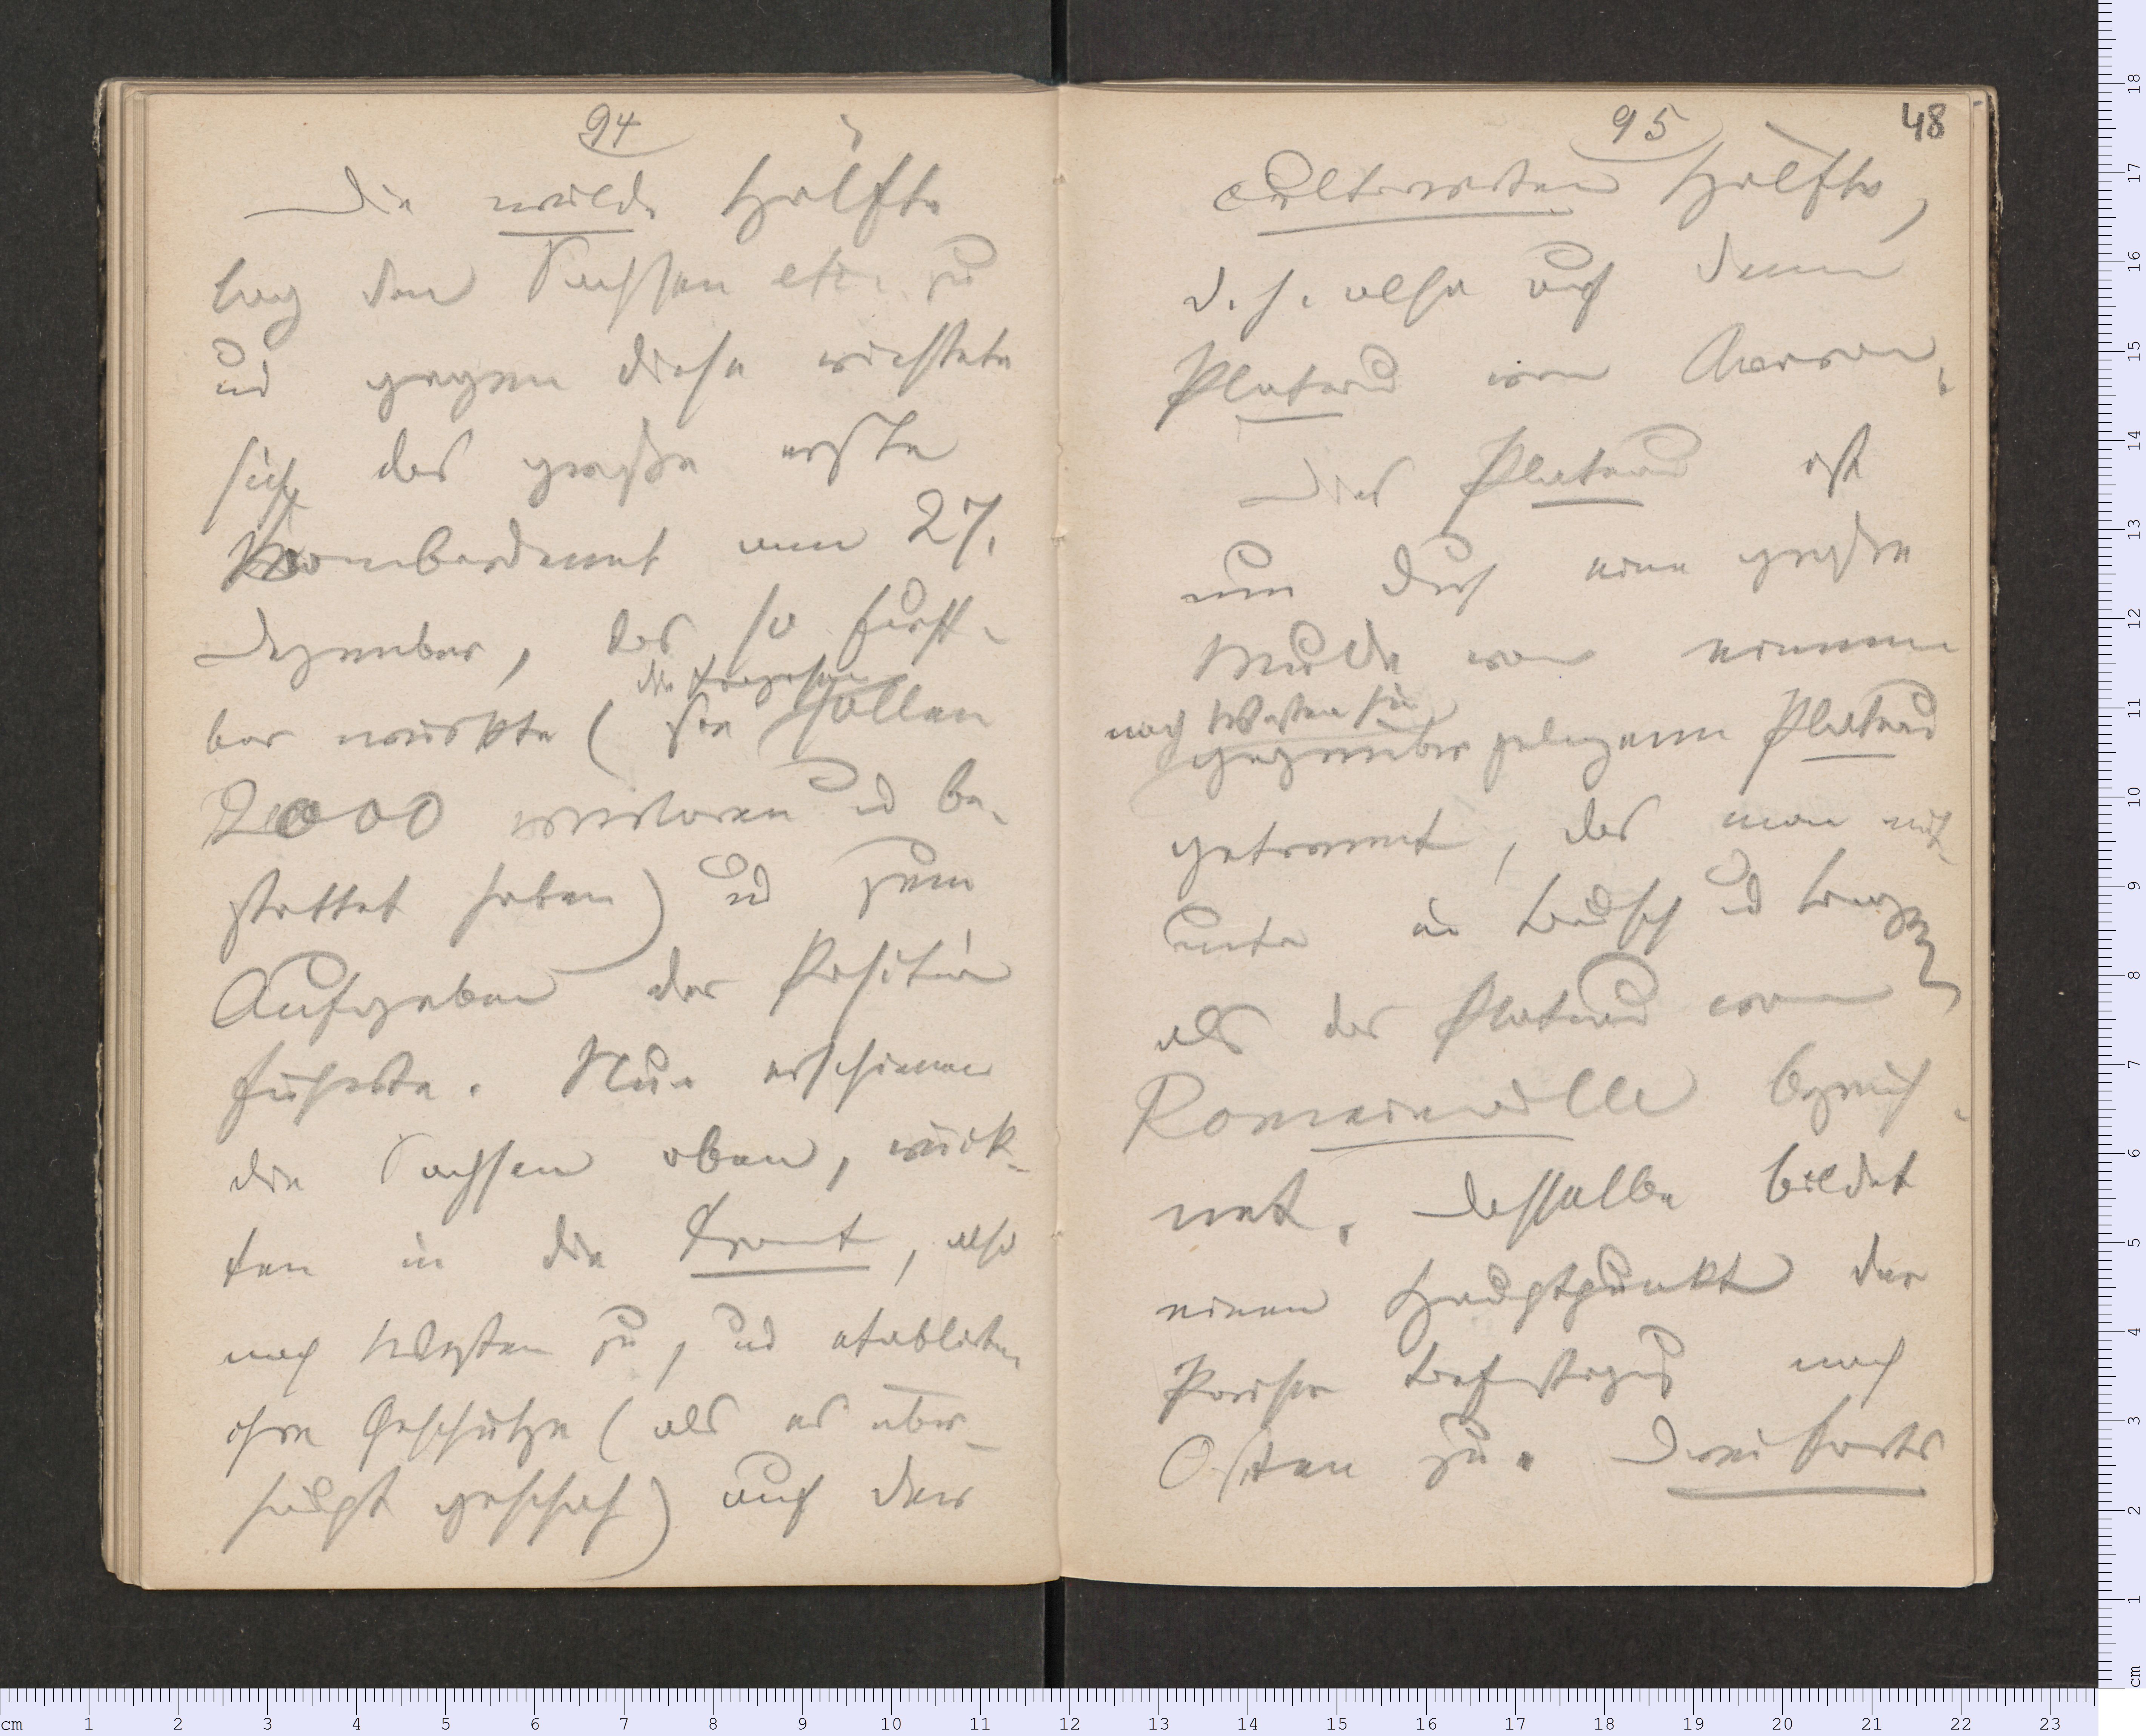 94
Die wilde Hälfte
lag den Sachsen etc. zu
und gegen diese richtete
sich das große erste
Bombardement vom 27.
Dezember, das so furcht-
bar wirkte (sie sollen
die Franzosen
2000 verloren und be-
stattet haben) und zum
Aufgeben der Position
führte. Nun erschienen
die Sachsen oben, rück-
ten in die Front, also
nach Westen zu, und etablirten
ihre Geschütze (als es über-
haupt geschah) auf der
95
48
cultivirten Hälfte,
d. h. also auf dem
Plateau von Avron.
Dies Plateau ist
nun durch eine große
Mulde von einem
nach Westen hin
gegenüber gelegenen Plateau
getrennt, das man mit-
unter in Bausch und Bogen
als das Plateau von
Romainville bezeich-
net. Dasselbe bildet
einen Hauptpunkt der
Pariser Befestigung nach
Osten zu. Drei Forts